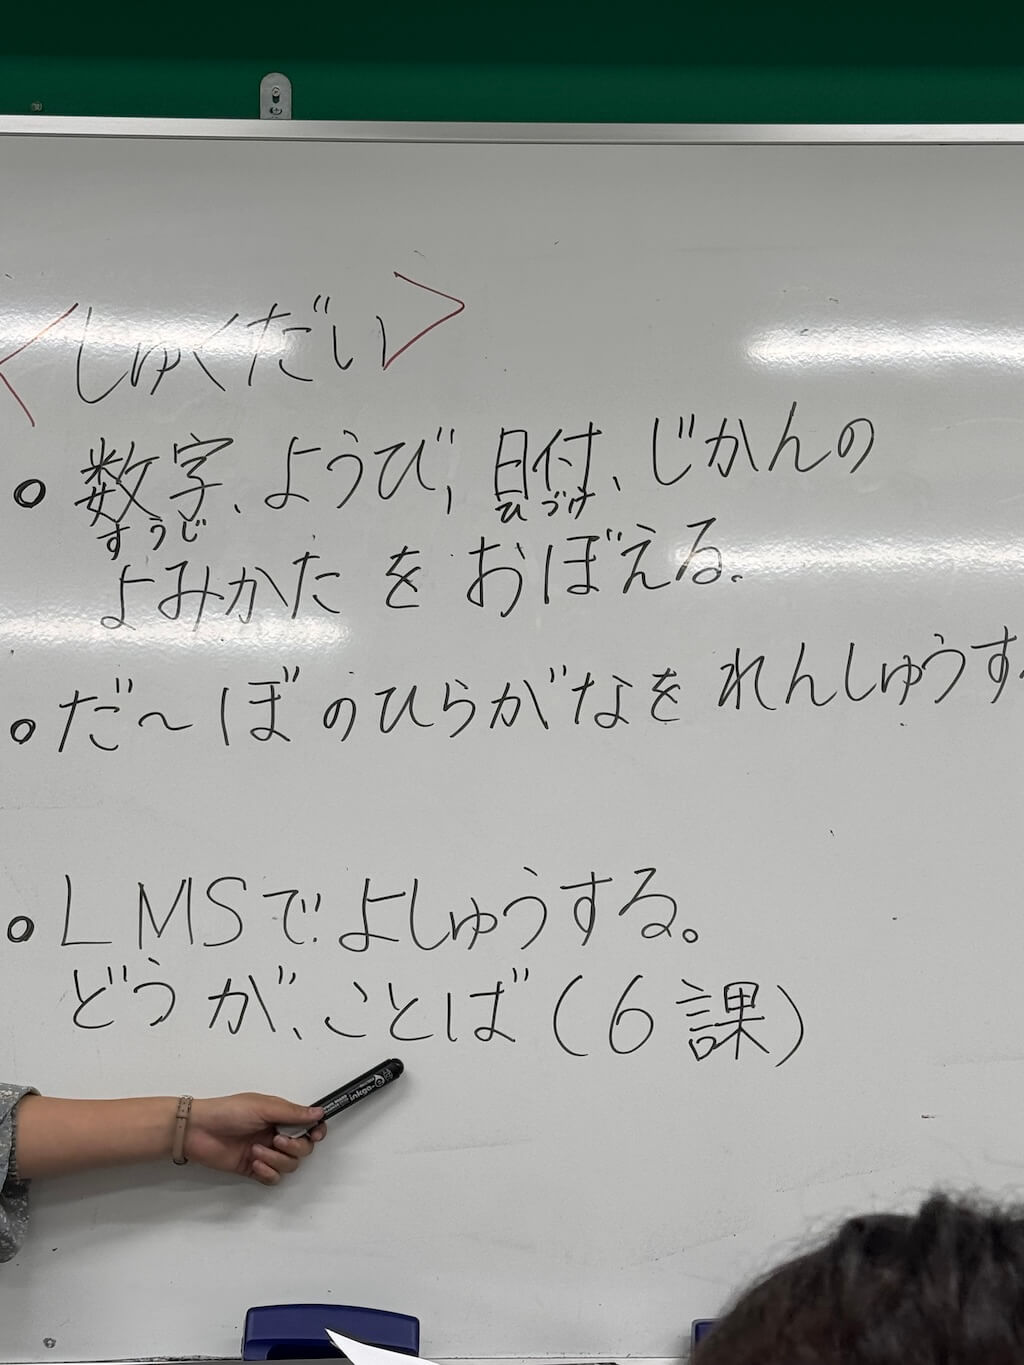 <しゅくだい>
• 数字、ようび、日付、じかんの
すうじ ひづけ
よみかた を おぼえる。
• だ~ぼ のひらがなを れんしゅうす
• LMSで よしゅうする。
どうが、ことば(6課)
inkgo-